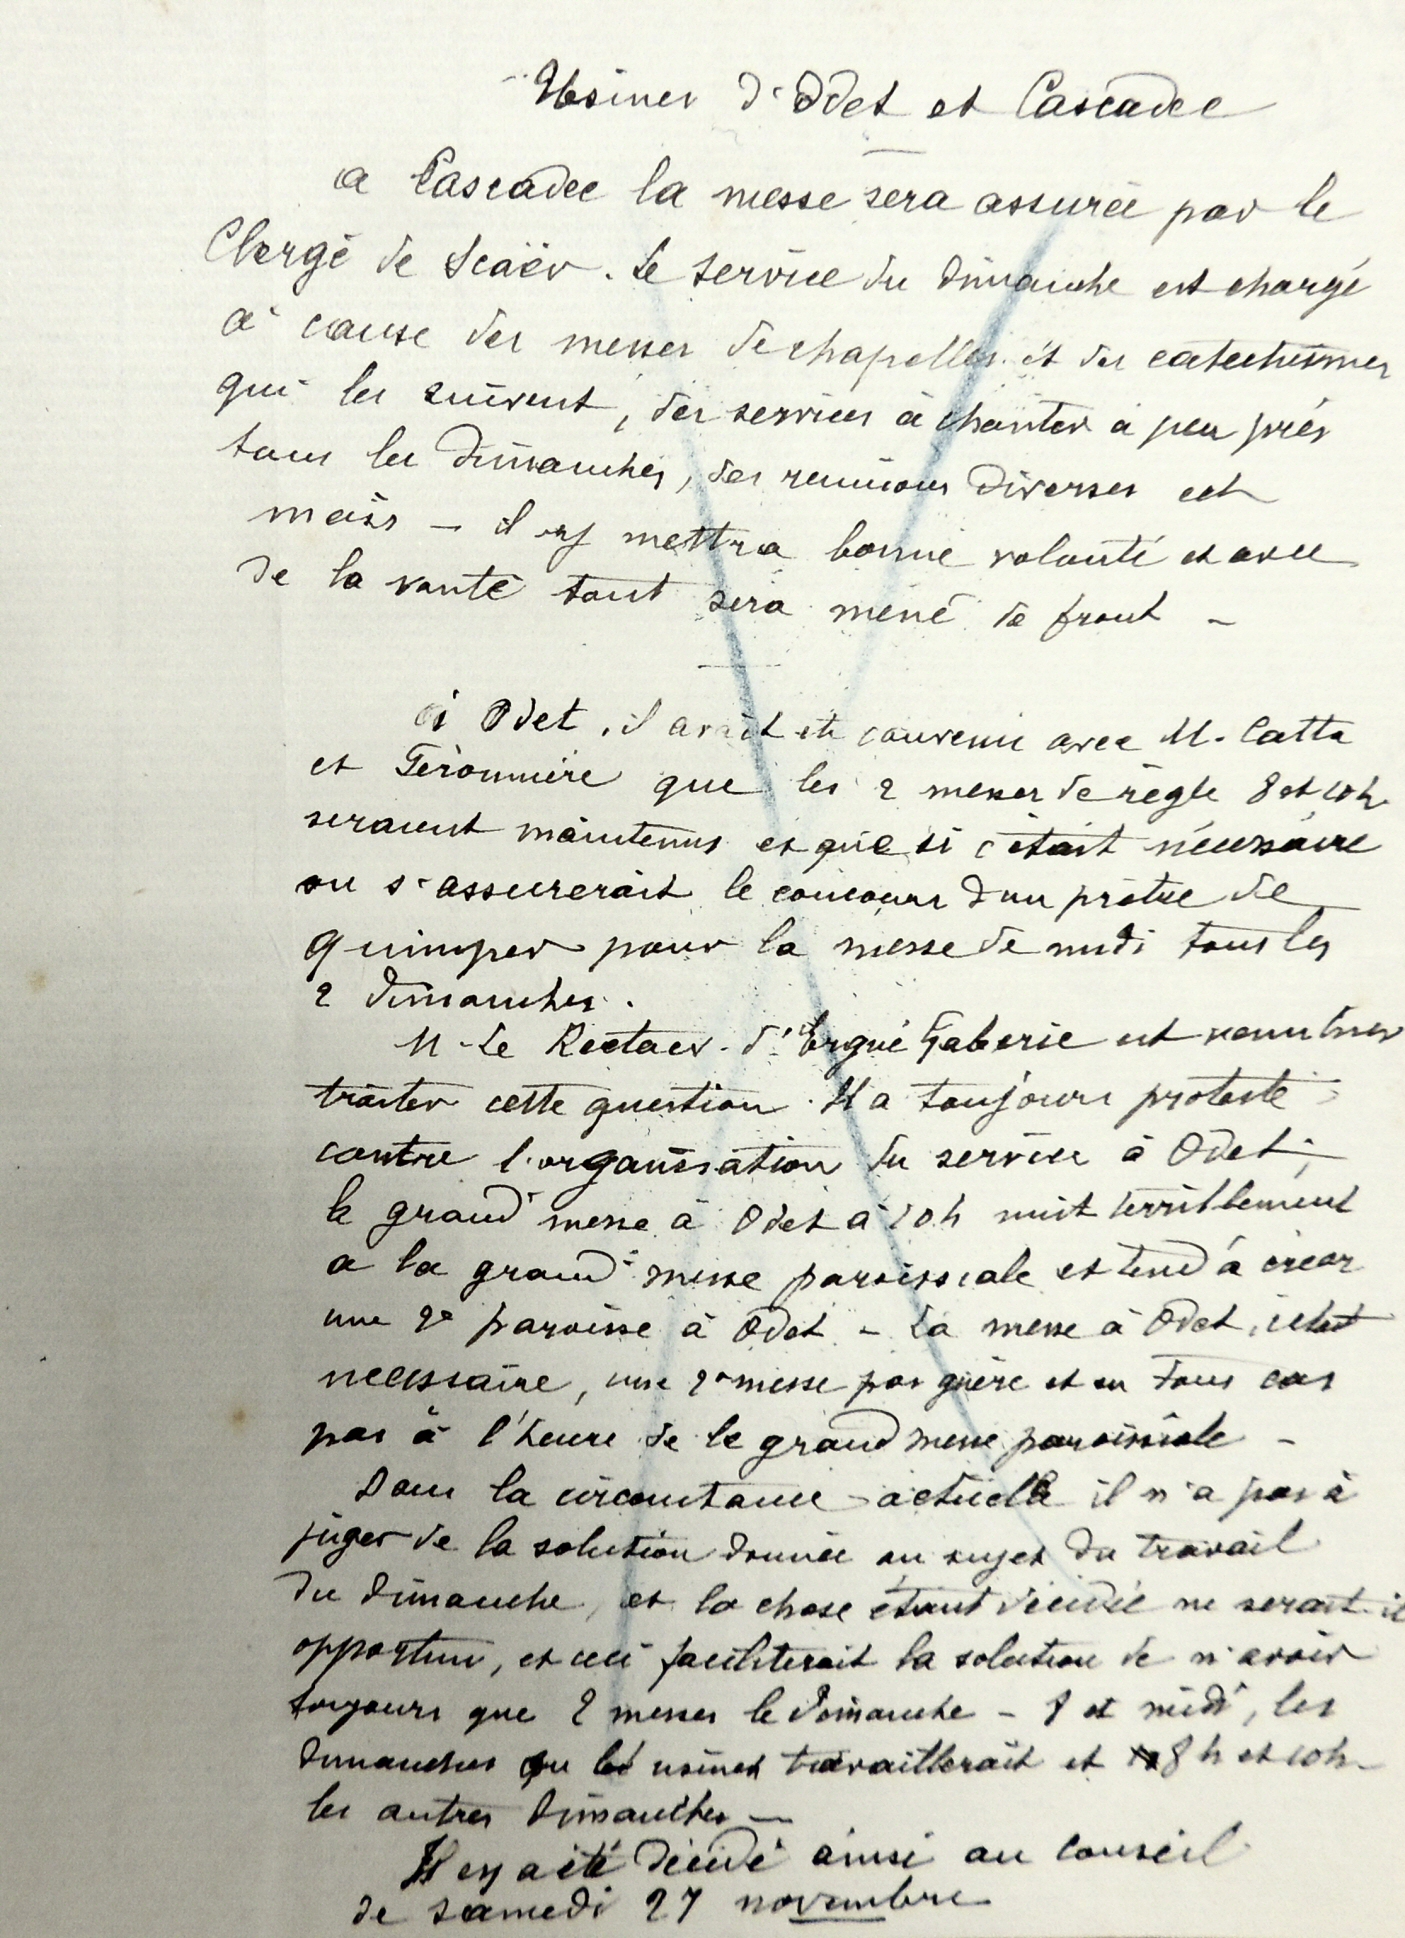 Usines d'Odet et Cascadec
a Cascadec la messe sera assurée par le
Clergé de Scaër. Le service du dimanche est chargé
à cause des messes de chapelles et des catechismes
qui les suivent, des services à chanter à peu près
tous les dimanches, des reunions diverses etc
mais - il y mettra bonne volonté et avec
de la santé tout sera mené de front -
à Odet, il avait été convenu avec M. Catta
et Ferònnière que les 2 messes de règle 8 et 10h
seraient maintenus et que si c'était nécessaire
on s'assurerait le concours d'un prêtre de
Quimper pour la messe de midi tous les
2 dimanches.
M. Le Recteur d'Ergué Gaberic est venu
traiter cette question. Il a toujours protesté
contre l'organisation du service à Odet;
la grand'messe à Odet à 10h nuit terriblement
a la grand'messe paroissiale et tend à créer
une 2e paroisse à Odet - La messe à Odet, c'est
necessaire, une 2e messe pas guère et en tous cas
pas à l'heure de la grand messe paroissiale -
Dans la circonstance actuelle il n'a pas à
juger de la solution donnée au sujet du travail
du dimanche, et la chose étant décidée ne serait-il
opportun, et ceci faciliterait la solution de n'avoir
toujours que 2 messes le dimanche - 8 et midi, les
dimanches ou les usines travaillerait et 8h et 10h
les autres dimanches -
Il en a été décidé ainsi au Conseil
de samedi 27 novembre